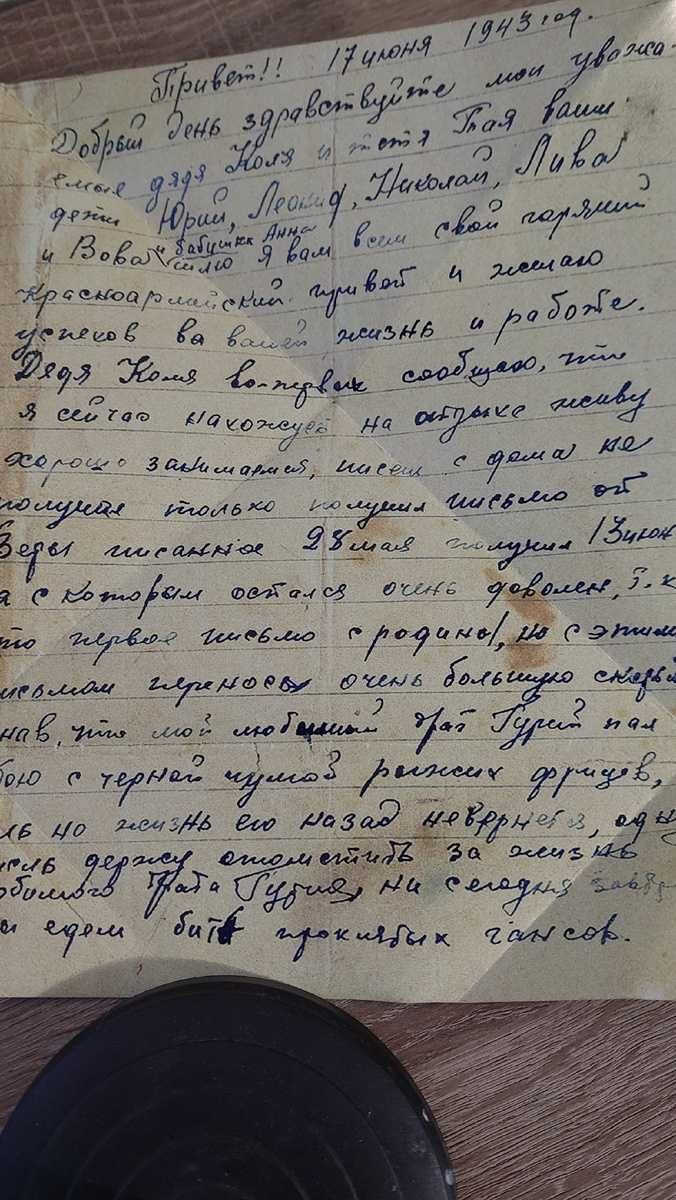 Привет!! 17 июня 1943 год.
Добрый день здравствуйте мои уважа-
емые дядя Коля и тетя Тая ваши
дети Юрий, Леонид, Николай, Лива
и бабушка Анна
и Вова шлю я вам всем свой горячий
красноармейский привет и желаю
успехов ва вашей жизнь и работе.
Дядя Коля во-первых сообщаю, что
я сейчас нахожусь на отдыхе живу
хорошо занимаемся, писем с дома не
получаю только получил письмо от
Веры писанное 28 мая получил 13 июн
я с которым остался очень доволен, т.к
то первое письмо с родины, но с этим
исьмом переносу очень большую
нав, что мой любимый брат Гурий пал
бою с черной чумой рыжих фрицев,
ль но жизнь его назад невернется, одну
ысль держу отомстить за жизнь
юбимого брата Гурия, ни сегодня завтра
и едем бить проклятых гансов.